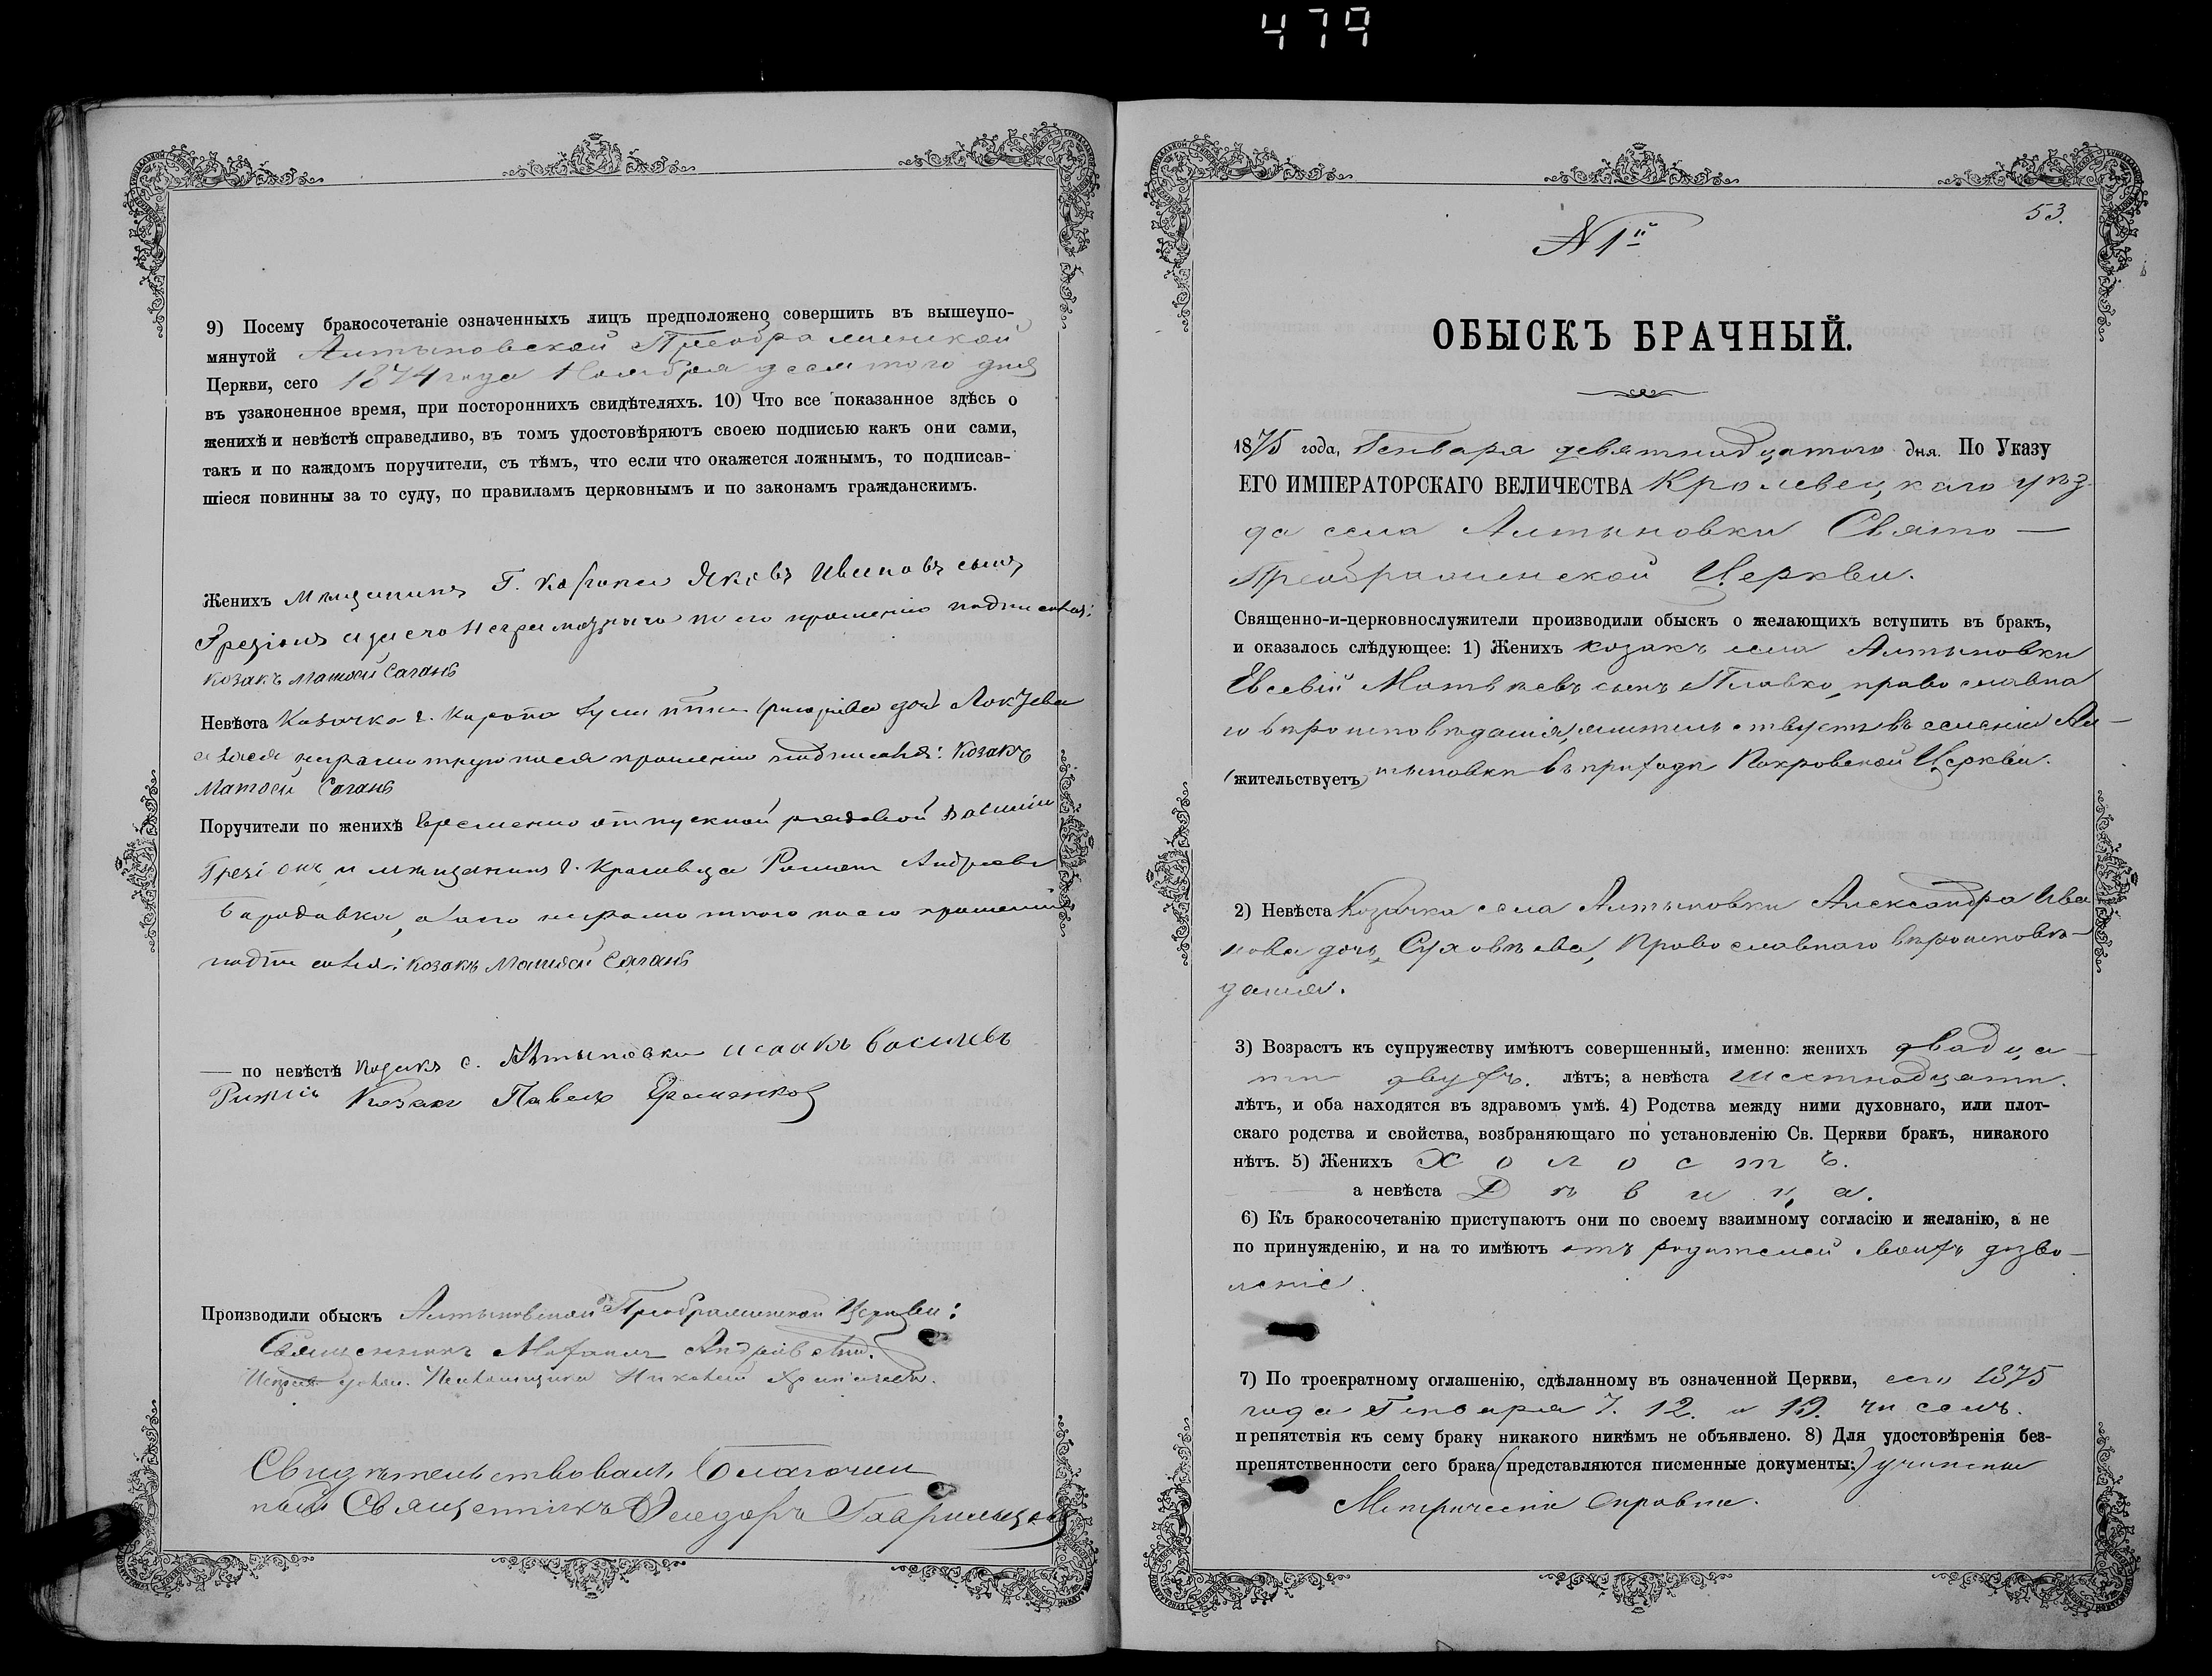 479
9) Посему бракосочетаніе означенныхъ лицъ предположено совершить въ вышеупо-
мянутой Алтыновской Преображенской
Церкви, сего 1874 года Ноября десятого дня
въ узаконенное время, при постороннихъ свидѣтеляхъ. 10) Что все показанное здѣсь о
женихѣ и невѣстѣ справедливо, въ томъ удостовѣряютъ своею подписью какъ они сами,
такъ и по каждомъ поручители, съ тѣмъ, что если что окажется ложнымъ, то подписав-
шіеся повинны за то суду, по правиламъ церковнымъ и по законамъ гражданскимъ.
Женихъ Мѣщанинъ Г. Яковъ Ивановъ сынъ
неграмотного по его прошенію
козакъ Матвей Саганъ
Невѣста Козачка г. дочь
неграмотную по ея прошенію подписався: Козакъ
Матвей Саганъ
Поручители по женихѣ временно отпускной рядовой
и мѣщанинъ г. Кролевца Роман Андреевъ
Бородавка, неграмотного по его прошенію
козакъ Матвей Саганъ
— по невѣстѣ Козакъ с. Алтыновки Исаакъ Васильевъ
Козакъ Павелъ
Производили обыскъ Алтыновской Преображенской Церкви:
Священникъ Михаилъ
Свидѣтельствовалъ Благочин
ный Священникъ Феодоръ
53.
N 1й
ОБЫСКЪ БРАЧНЫЙ.
1875 года, Генваря девятнадцатого дня. По Указу
ЕГО ИМПЕРАТОРСКАГО ВЕЛИЧЕСТВА Кролевецкаго уѣз-
да села Алтыновки Свято —
Преображенской Церкви.
Священно-и-церковнослужители производили обыскъ о желающихъ вступить въ бракъ,
и оказалось слѣдующее: 1) Женихъ козакъ села Алтыновки
Евсевій Матвѣевъ сынъ Плавко, православна
го вѣроисповѣданія, жительствуетъ въ селеніи Ал —
(жительствуетъ) тыновки въ приходѣ Покровской Церкви.
2) Невѣста Козачка села Алтыновки Александра Ива
нова дочь Суховѣева, Православнаго вѣроисповѣ-
данія.
3) Возрастъ къ супружеству имѣютъ совершенный, именно: женихъ двадца —
ти двухъ. лѣтъ; а невѣста шестнадцати.
лѣтъ, и оба находятся въ здравомъ умѣ. 4) Родства между ними духовнаго, или плот-
скаго родства и свойства, возбраняющаго по установленію Св. Церкви бракъ, никакого
нѣтъ. 5) Женихъ Холостъ.
а невѣста Дѣвица.
6) Къ бракосочетанію приступаютъ они по своему взаимному согласію и желанію, а не
по принужденію, и на то имѣютъ отъ родителей своихъ дозво —
леніе.
7) По троекратному оглашенію, сдѣланному въ означенной Церкви, сего 1875
года Генваря 7. 12. и 19. чиселъ.
препятствія къ сему браку никакого никѣмъ не объявлено. 8) Для удостовѣренія без-
препятственности сего брака (представляются писменные документы:) учинены
Метрическія Справки.